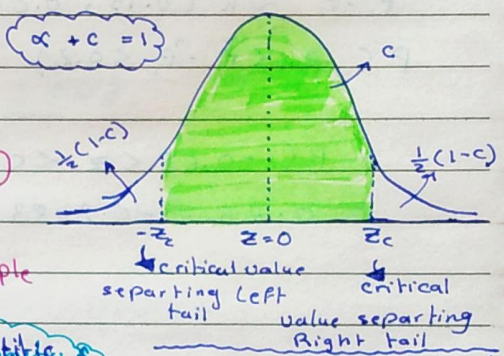 α + c = 1
c
½(1-c)
½(1-c)
-Zc
Z=0
Zc
critical value
separting Left
tail
critical
value separting
Right tail